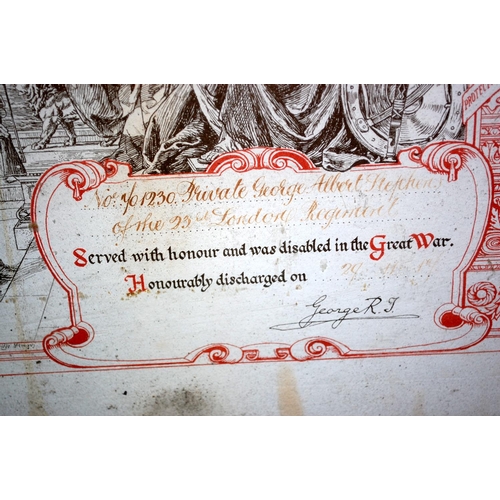 PROTECT
No. 1230. Private George Albert Stephens
of the 23rd London Regiment
Served with honour and was disabled in the Great War.
Honourably discharged on 29
George R.I.